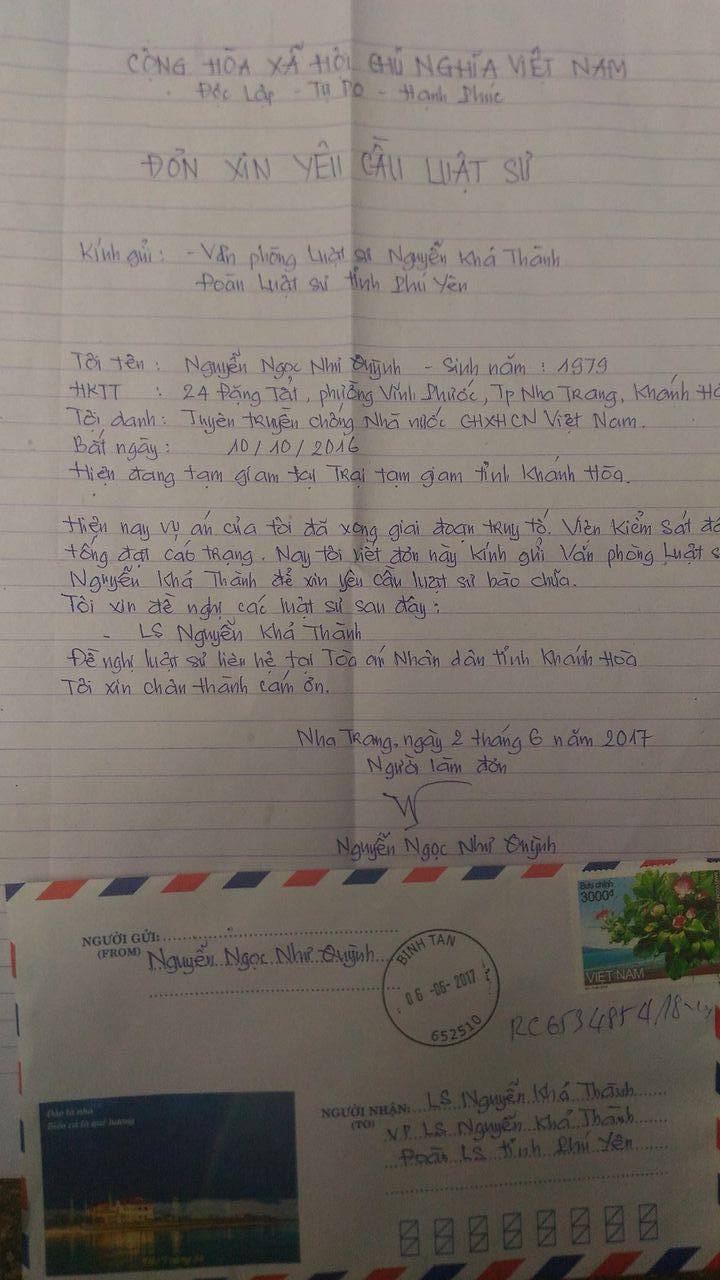 CỘNG HÒA XÃ HỘI CHỦ NGHĨA VIỆT NAM
Độc Lập - Tự Do - Hạnh Phúc
ĐƠN XIN YÊU CẦU LUẬT SƯ
Kính gửi: - Văn phòng Luật sư Nguyễn Khả Thành
Đoàn Luật sư tỉnh Phú Yên
Tôi tên : Nguyễn Ngọc Như Quỳnh - Sinh năm : 1979
HKTT : 24 Đặng Tất, phường Vĩnh Phước, Tp Nha Trang, Khánh Hò
Tội danh: Tuyên truyền chống Nhà nước CHXHCN Việt Nam.
Bắt ngày: 10/10/2016
Hiện đang tạm giam tại Trại tạm giam tỉnh Khánh Hòa.
Hiện nay vụ án của tôi đã xong giai đoạn truy tố. Viện Kiểm sát đã
tống đạt cáo trạng. Nay tôi viết đơn này kính gửi Văn phòng Luật s
Nguyễn Khả Thành để xin yêu cầu luật sư bào chữa.
Tôi xin đề nghị các luật sư sau đây:
- LS Nguyễn Khả Thành
Đề nghị luật sư liên hệ tại Tòa án Nhân dân tỉnh Khánh Hòa
Tôi xin chân thành cám ơn.
Nha Trang, ngày 2 tháng 6 năm 2017
Người làm đơn
Nguyễn Ngọc Như Quỳnh
Bưu chính
3000đ
VIỆT NAM
NGƯỜI GỬI:
(FROM) Nguyễn Ngọc Như Quỳnh
BÌNH TÂN
06-06-2017
652510
Đảo là nhà
Biển cả là quê hương
NGƯỜI NHẬN: LS Nguyễn Khả Thành
(TO) VP LS Nguyễn Khả Thành
Đoàn LS tỉnh Phú Yên